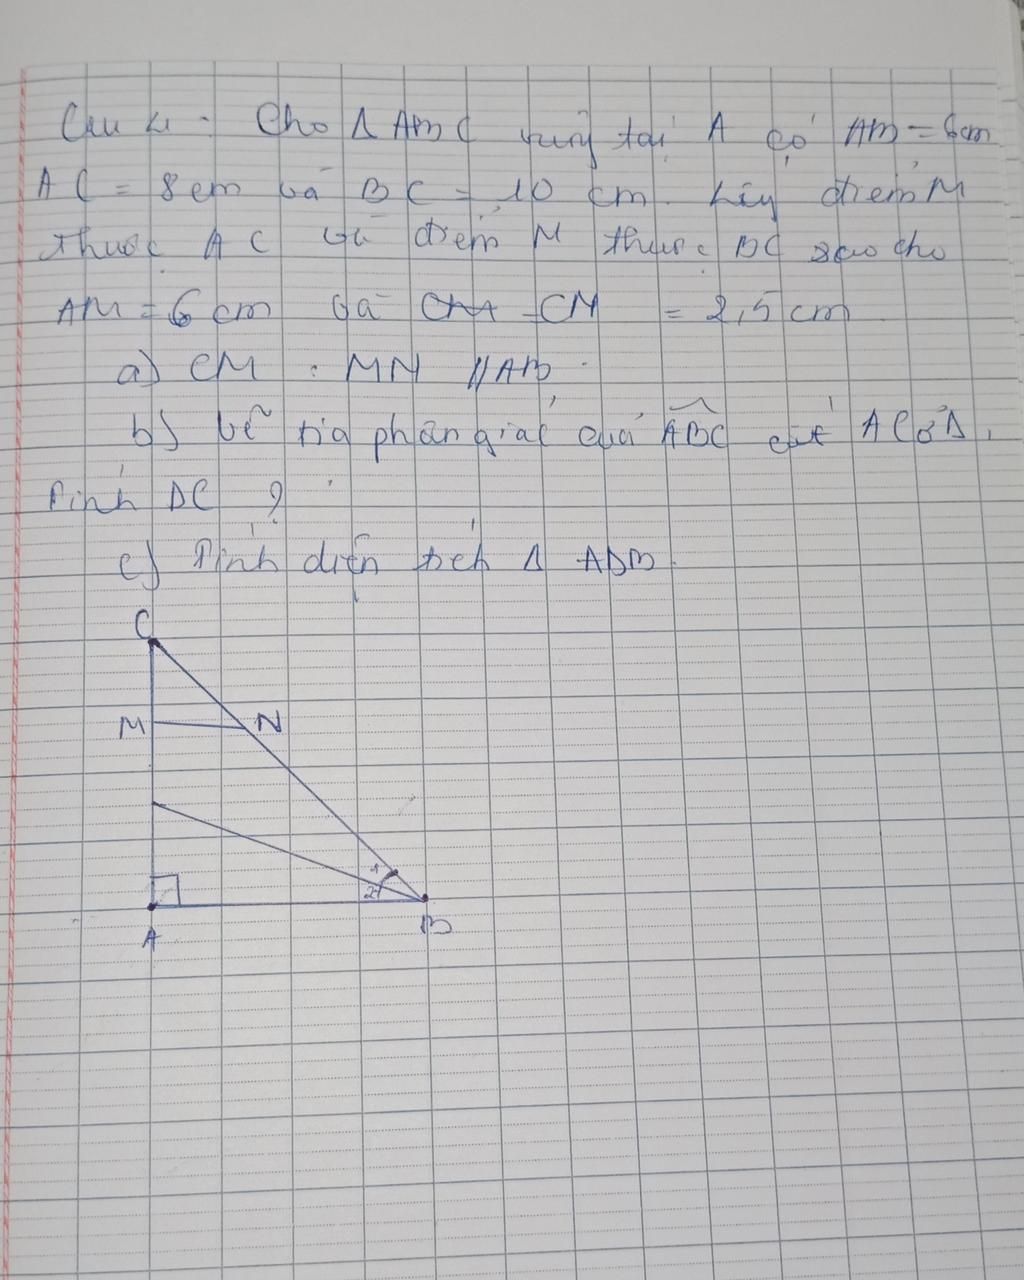 Câu 4: Cho Δ ABC vuông tại A có AB = 6cm
AC = 8cm và BC = 10 cm. Lấy điểm M
thuộc AC và điểm N thuộc BC sao cho
AM = 6 cm và CN = 2,5 cm
a) CM : MN // AB.
b) Vẽ tia phân giác của ABC cắt AC ở D.
Tính DC ?
c) Tính diện tích Δ ADB.
C
M N
1
2
A B